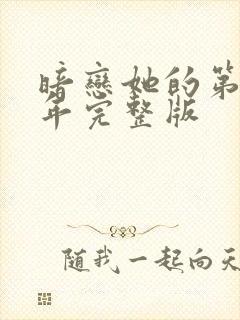 暗戀她的第
年完整版
随我一起向天